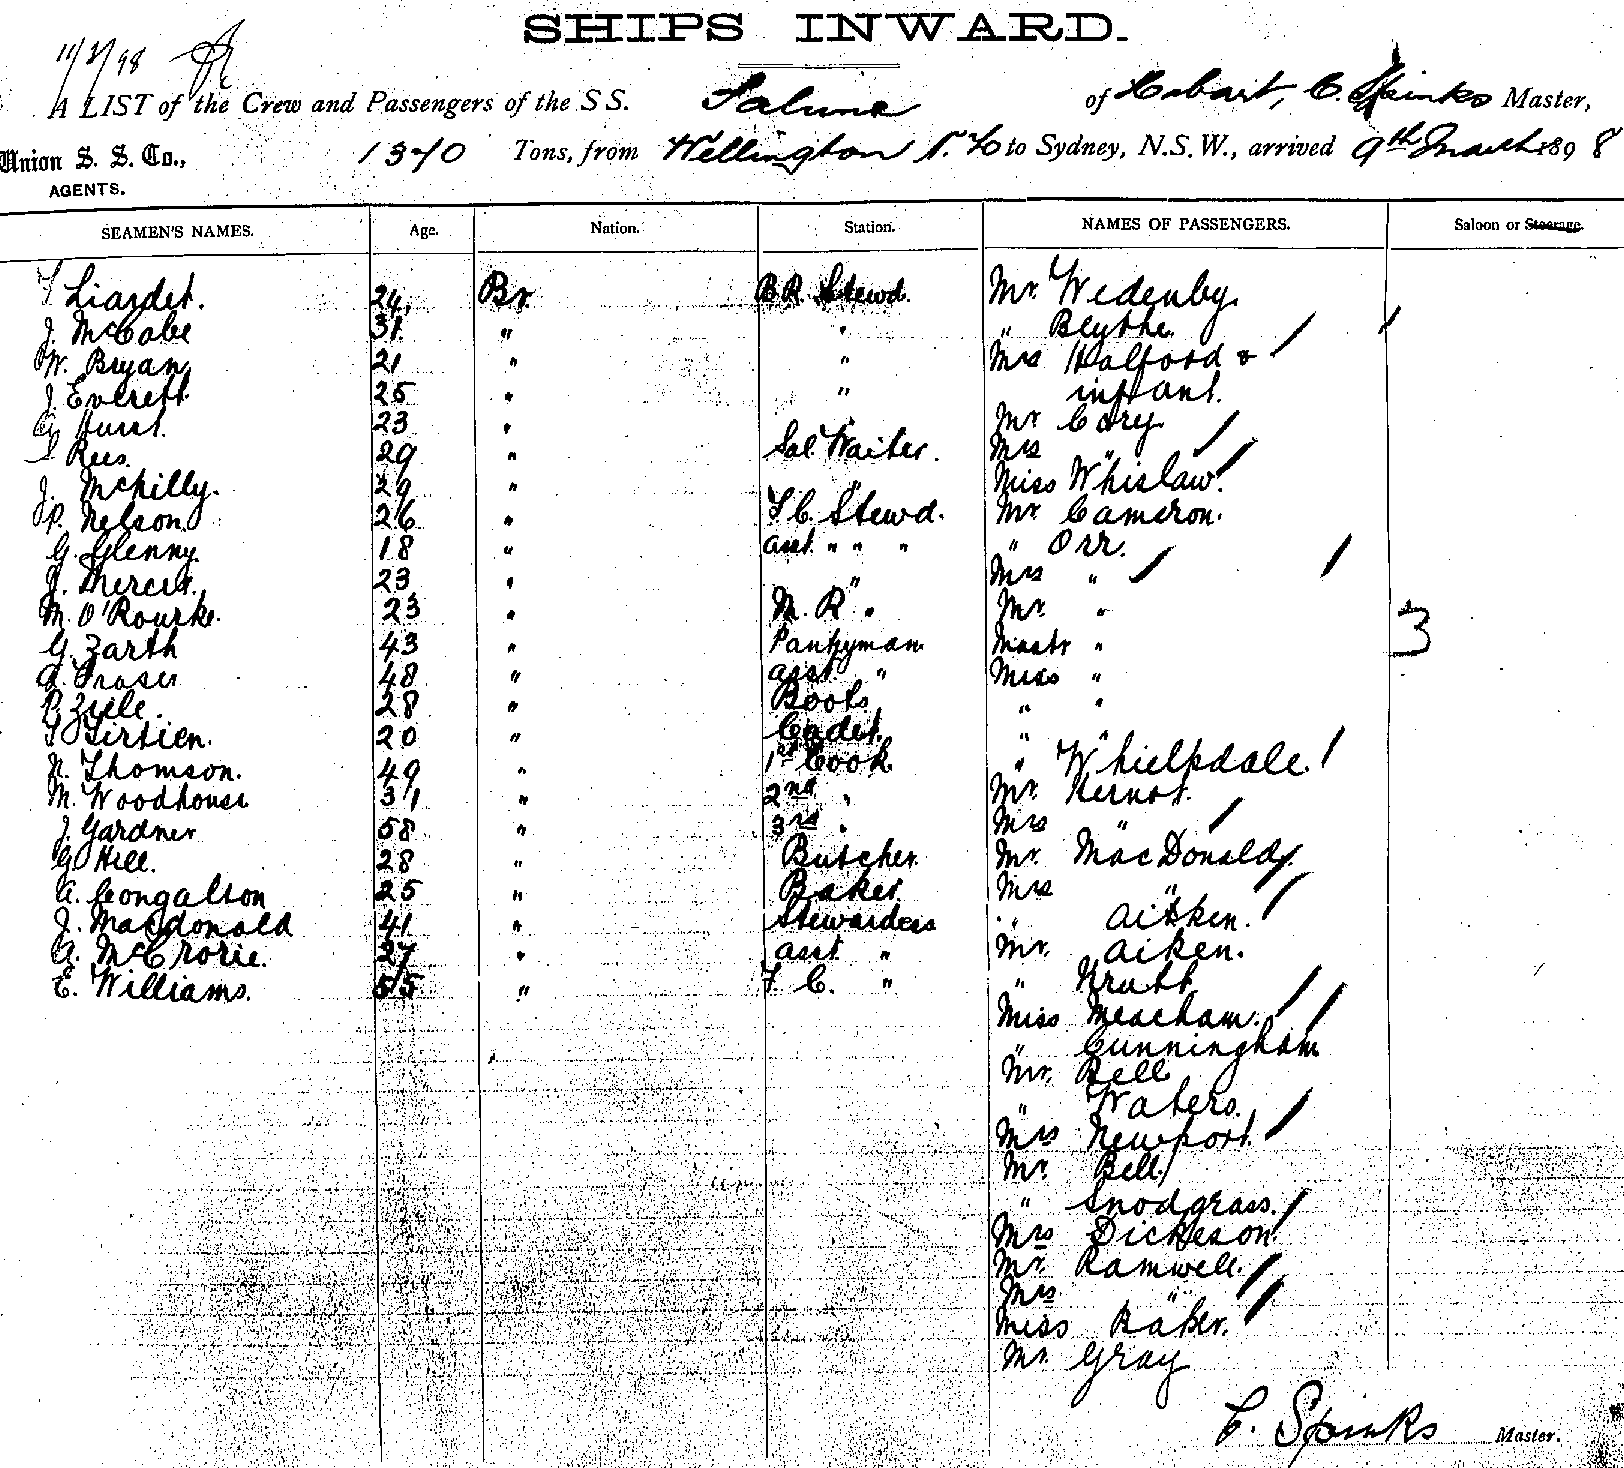 SHIPS INWARD.
11/3/98
A LIST of the Crew and Passengers of the S S. Talune of Hobart, C. Spinks Master,
Union S. S. Co., AGENTS. 1370 Tons, from Wellington N.Z. to Sydney, N.S.W., arrived 9th March 1898
SEAMEN'S NAMES. Age. Nation. Station. NAMES OF PASSENGERS. Saloon or Steerage.
Liardet. 24 Br. B.R. Stewd. Mr. Wedenby.
J. McCabe 31 " " " Blythe
W. Bryan 21 " " Mrs Halford &
J. Everett 25 " " infant.
Hurst. 23 " " Mr Cory
Rees 29 " Sal. Waiter. Mrs "
J. McKilly. 29 " " Miss Whislaw
P. Nelson 26 " F.C. Stewd. Mr Cameron.
G. Glenny 18 " asst. " " " " Orr.
J. Mercer. 23 " " Mrs "
M. O'Rourke. 23 " M. R " Mr. "
G. Zarth 43 " Pantryman Mastr "
A. Fraser 48 " asst " Miss " 3
P. Ziele. 28 " Boots " "
Sirtien. 20 " Cadet. " "
N. Thomson. 49 " 1st Cook " Whielpdale
M. Woodhouse 31 " 2nd " Mr. Kernot.
J. Gardner 58 " 3rd " Mrs "
G. Hill. 28 " Butcher Mr. MacDonald
A. Congalton 25 " Baker Mrs "
J. Macdonald 41 " Stewardess " Aitken.
A. McCrorie. 27 " asst " Mr. Aiken.
E. Williams. 55 " F. C. " " Krutt
Miss Meacham.
" Cunningham
Mr. Bell
" Waters.
Mrs Newport.
Mr. Bell
" Snodgrass.
Mrs Dickeson
Mr. Ramwell.
Mrs "
Miss Baker.
Mr. Gray
C. Spinks Master.